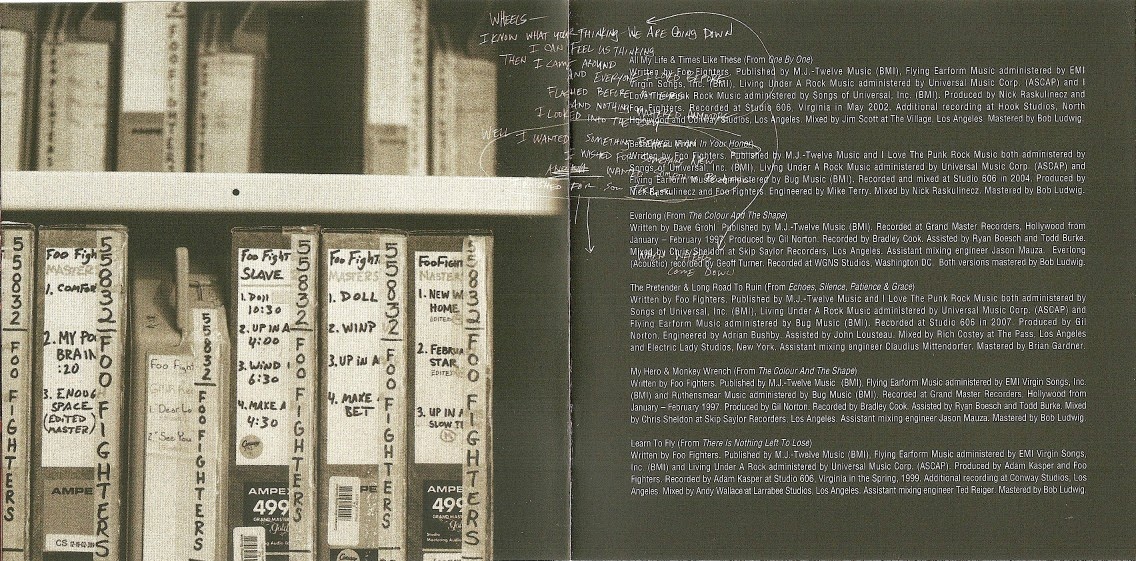 WHEELS—
I KNOW WHAT YOUR THINKING WE ARE GOING DOWN
I CAN FEEL US THINKING
THEN I CAME AROUND
AND EVERYONE I LOVED BEFORE
FLASHED BEFORE
AND NOTHING MATTERED ANYMORE
I LOOKED INTO THE
WELL I WANTED SOMETHING BETTER MAN
I WISHED FOR SOMETHING NEW
WANTED SOMETHING
WISHED FOR
COME DOWN
FOO FIGHTERS
55832 FOO FIGHTERS
Foo Fight
MASTERS
1. COMFOR
2. MY PO
BRAIN
:20
3. ENOUG
SPACE
(EDITED
MASTER)
AMPE
CS
55832 FOO FIGHTERS
Foo Fight
1. Dear Lo
2. See You
55832 FOO FIGHTERS
Foo FighT
SLAVE
1. DOLL
10:30
2. UP IN A
4:00
3. WIND
6:30
4. MAKE A
4:30
AMPEX
499
GRAND MASTER
Gold
55832 FOO FIGHTERS
Foo FighT
MASTERS
1. DOLL
2. WIND
3. UP IN A
4. MAKE A
BET
55832 FOO FIGHTERS
Foo Fight
MASTER
1. NEW W
HOME
EDITED
2. FEBRUA
STAR
EDITED
3. UP IN A
SLOW T
AMPE
499
GRAND MASTER
Gold
Studio
Mastering Audio
55832 FOO FIGHTERS
All My Life & Times Like These (From One By One)
Written by Foo Fighters. Published by M.J.-Twelve Music (BMI), Flying Earform Music administered by EMI
Virgin Songs, Inc. (BMI), Living Under A Rock Music administered by Universal Music Corp. (ASCAP) and I
Love The Punk Rock Music administered by Songs of Universal, Inc. (BMI). Produced by Nick Raskulinecz and
Foo Fighters. Recorded at Studio 606, Virginia in May 2002. Additional recording at Hook Studios, North
Hollywood and Conway Studios, Los Angeles. Mixed by Jim Scott at The Village, Los Angeles. Mastered by Bob Ludwig.
Best Of You (From In Your Honor)
Written by Foo Fighters. Published by M.J.-Twelve Music and I Love The Punk Rock Music both administered by
Songs of Universal, Inc. (BMI), Living Under A Rock Music administered by Universal Music Corp. (ASCAP) and
Flying Earform Music administered by Bug Music (BMI). Recorded and mixed at Studio 606 in 2004. Produced by
Nick Raskulinecz and Foo Fighters. Engineered by Mike Terry. Mixed by Nick Raskulinecz. Mastered by Bob Ludwig.
Everlong (From The Colour And The Shape)
Written by Dave Grohl. Published by M.J.-Twelve Music (BMI). Recorded at Grand Master Recorders, Hollywood from
January – February 1997. Produced by Gil Norton. Recorded by Bradley Cook. Assisted by Ryan Boesch and Todd Burke.
Mixed by Chris Sheldon at Skip Saylor Recorders, Los Angeles. Assistant mixing engineer Jason Mauza. Everlong
(Acoustic) recorded by Geoff Turner. Recorded at WGNS Studios, Washington DC. Both versions mastered by Bob Ludwig.
The Pretender & Long Road To Ruin (From Echoes, Silence, Patience & Grace)
Written by Foo Fighters. Published by M.J.-Twelve Music and I Love The Punk Rock Music both administered by
Songs of Universal, Inc. (BMI), Living Under A Rock Music administered by Universal Music Corp. (ASCAP) and
Flying Earform Music administered by Bug Music (BMI). Recorded at Studio 606 in 2007. Produced by Gil
Norton. Engineered by Adrian Bushby. Assisted by John Lousteau. Mixed by Rich Costey at The Pass, Los Angeles
and Electric Lady Studios, New York. Assistant mixing engineer Claudius Mittendorfer. Mastered by Brian Gardner.
My Hero & Monkey Wrench (From The Colour And The Shape)
Written by Foo Fighters. Published by M.J.-Twelve Music (BMI), Flying Earform Music administered by EMI Virgin Songs, Inc.
(BMI) and Ruthensmear Music administered by Bug Music (BMI). Recorded at Grand Master Recorders, Hollywood from
January – February 1997. Produced by Gil Norton. Recorded by Bradley Cook. Assisted by Ryan Boesch and Todd Burke. Mixed
by Chris Sheldon at Skip Saylor Recorders, Los Angeles. Assistant mixing engineer Jason Mauza. Mastered by Bob Ludwig.
Learn To Fly (From There Is Nothing Left To Lose)
Written by Foo Fighters. Published by M.J.-Twelve Music (BMI), Flying Earform Music administered by EMI Virgin Songs,
Inc. (BMI) and Living Under A Rock administered by Universal Music Corp. (ASCAP). Produced by Adam Kasper and Foo
Fighters. Recorded by Adam Kasper at Studio 606, Virginia in the Spring, 1999. Additional recording at Conway Studios, Los
Angeles. Mixed by Andy Wallace at Larrabee Studios, Los Angeles. Assistant mixing engineer Ted Reiger. Mastered by Bob Ludwig.